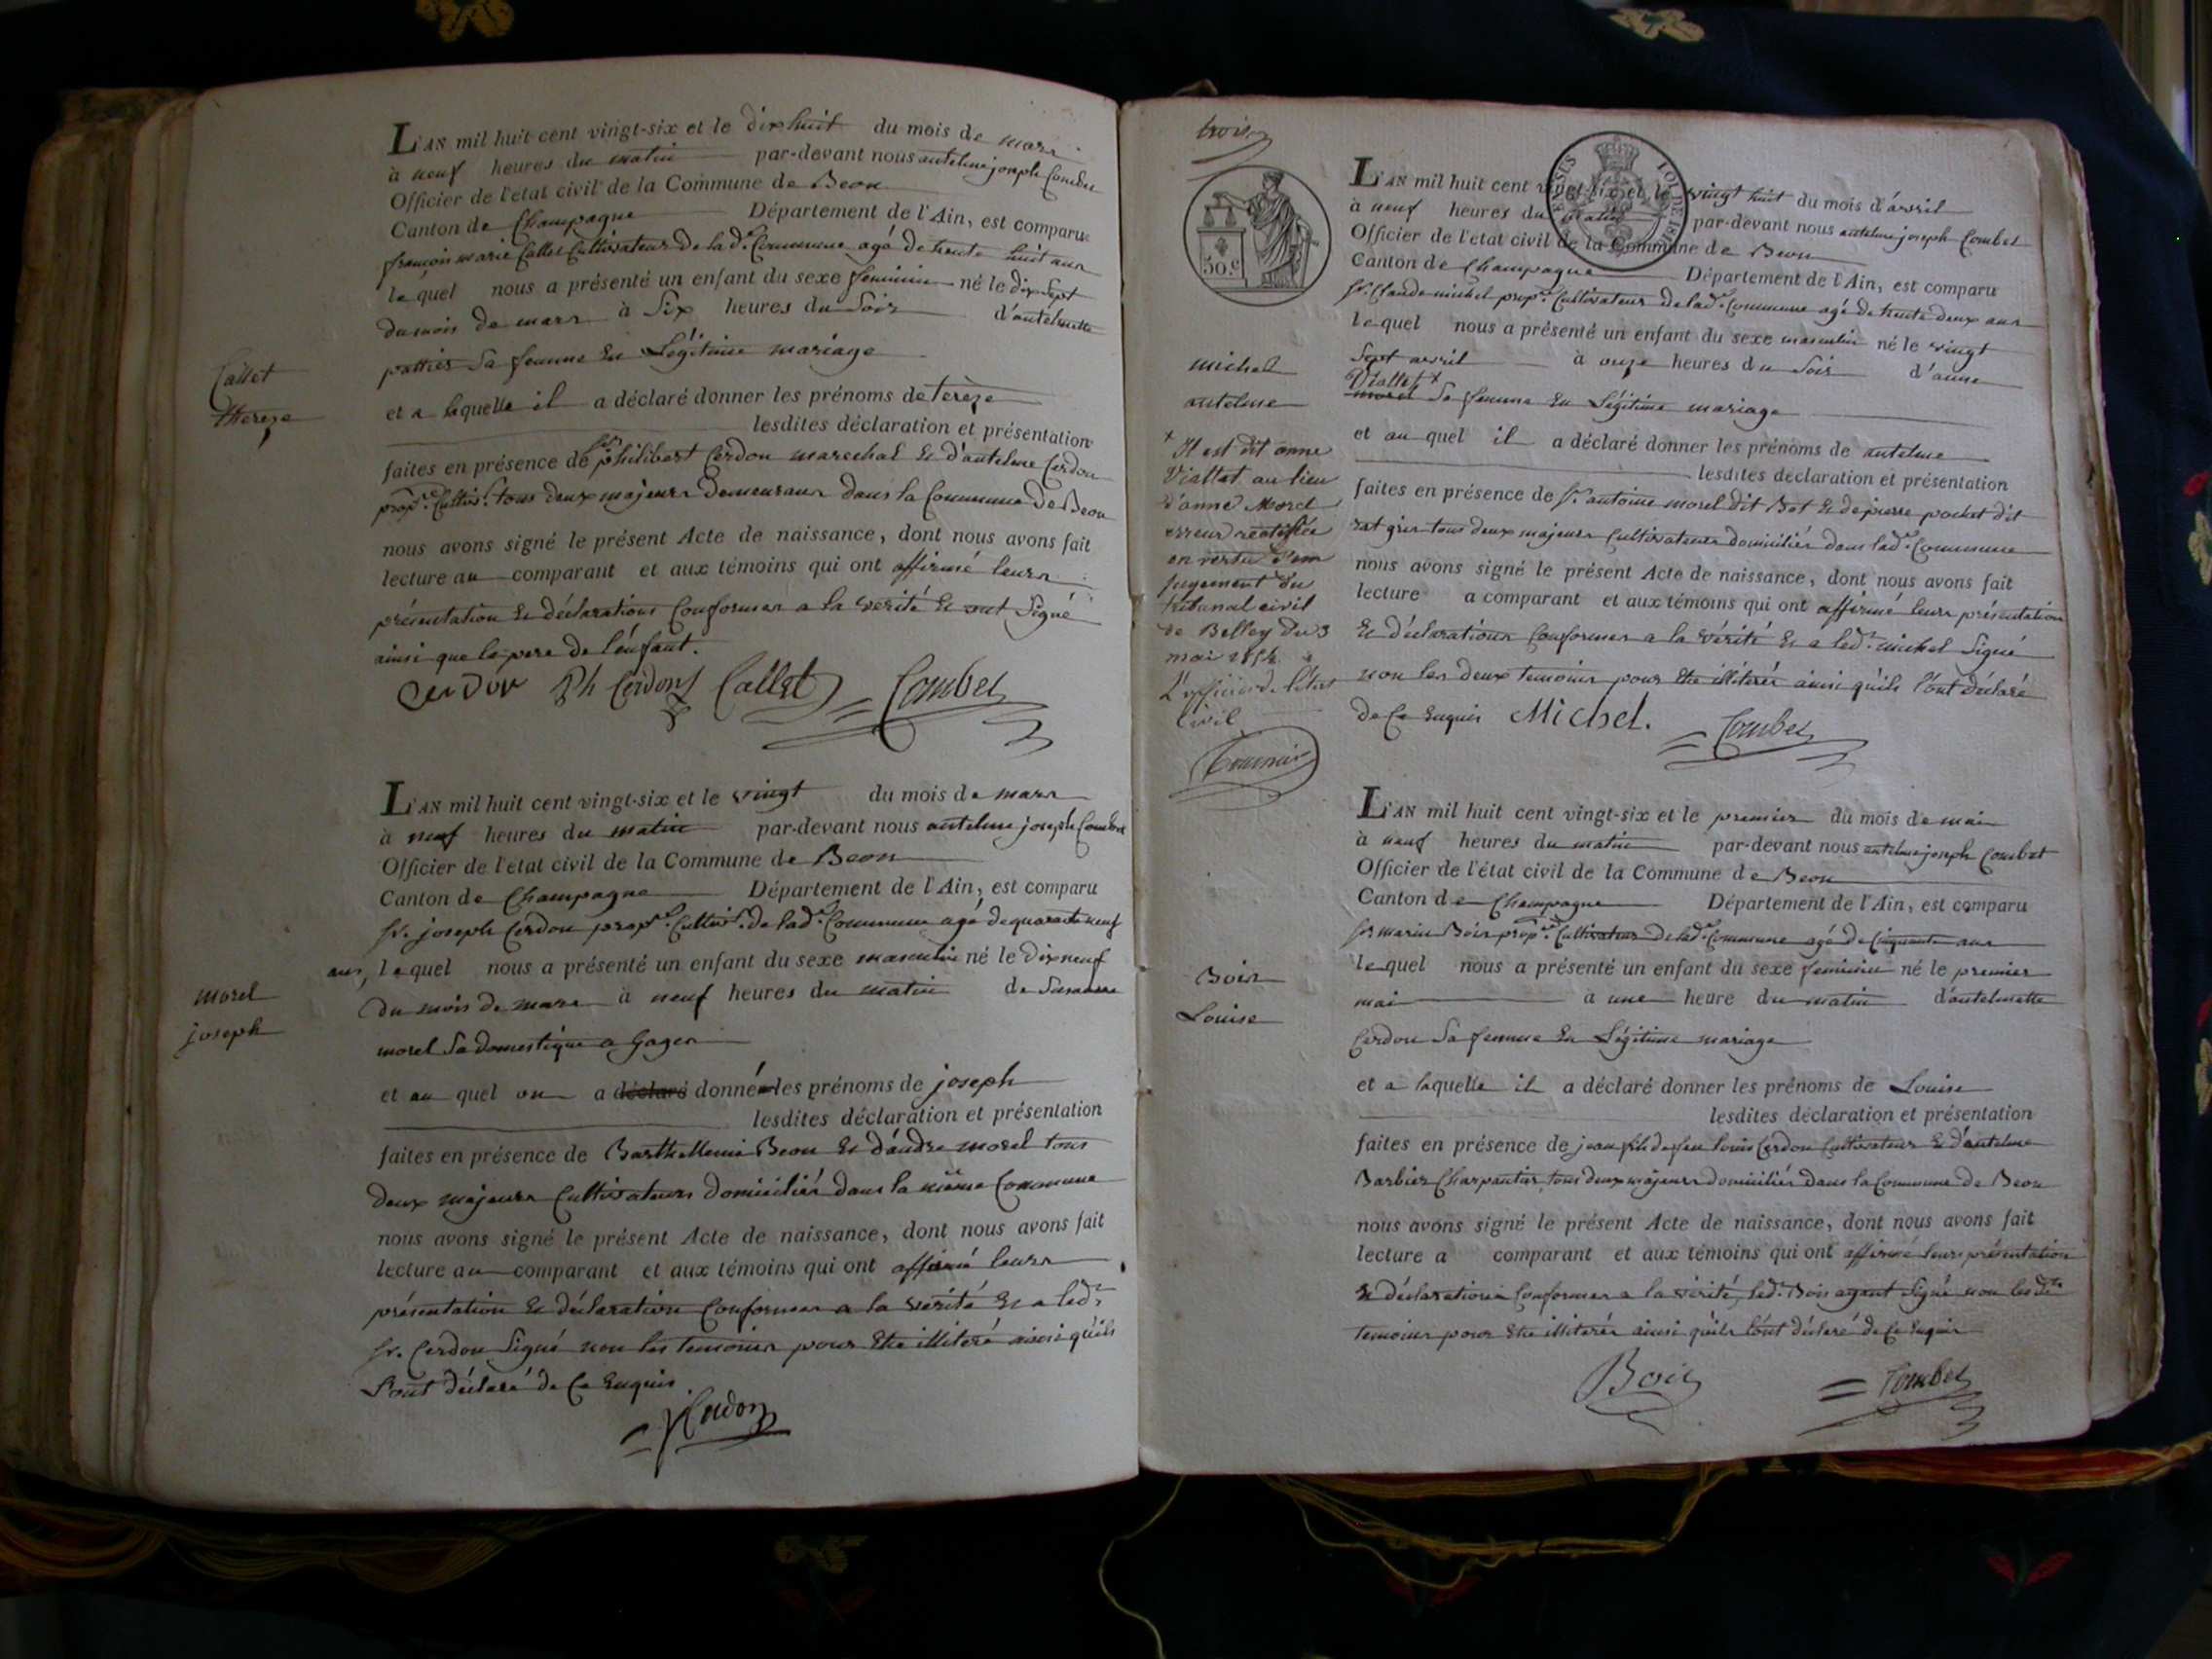 L'AN mil huit cent vingt-six et le dix huit du mois de mars
à neuf heures du matin par-devant nous antelme joseph Combet
Officier de l'etat civil de la Commune de Beon
Canton de Champagne Département de l'Ain, est comparu
francois marie Callet Cultivateur de la de. Commune agé de trente huit ans
le quel nous a présenté un enfant du sexe feminin né le dix sept
du mois de mars à Six heures du Soir d'antelmette
pattier Sa femme En Légitime mariage
Callet
thereze
et a laquelle il a déclaré donner les prénoms de Tereze
lesdites déclaration et présentation
faites en présence de sr. philibert Cerdon marechal Et d'antelme Cerdon
propre. Cultivr. tous deux majeurs demeurans dans la Commune de Beon
nous avons signé le présent Acte de naissance, dont nous avons fait
lecture au comparant et aux témoins qui ont affirmé leurs
présentation Et déclarations Conformes a la verité Et ont Signé
ainsi que le pere de l'enfant.
Cerdon Ph Cerdon Callet Combet
L'AN mil huit cent vingt-six et le vingt du mois de mars
à neuf heures du matin par-devant nous antelme joseph Combet
Officier de l'etat civil de la Commune de Beon
Canton de Champagne Département de l'Ain, est comparu
sr. joseph Cerdon propre. Cultivr. de lade. Commune agé de quarante neuf
ans, le quel nous a présenté un enfant du sexe masculin né le dix neuf
du mois de mars à neuf heures du matin de Susanne
morel Sa domestique a Gages
morel
joseph
et au quel on a déclaré donné les prénoms de joseph
lesdites déclaration et présentation
faites en présence de Barthellemie Beon Et d'andre morel tous
deux majeurs Cultivateurs domiciliés dans la même Commune
nous avons signé le présent Acte de naissance, dont nous avons fait
lecture au comparant et aux témoins qui ont affirmé leurs
présentation Et déclaration Conformes a la verité Et a ledt.
sr. Cerdon Signé non les temoins pour Etre illiteré ainsi qu'ils
l'ont déclaré de Ce Enquis.
Cerdon
trois
50.c
L'AN mil huit cent vingt-six et le vingt huit du mois d'avril
à neuf heures du matin par-devant nous antelme joseph Combet
Officier de l'etat civil de la Commune de Beon
Canton de Champagne Département de l'Ain, est comparu
sr. Claude michel propre. Cultivateur de lade. Commune agé de trente deux ans
le quel nous a présenté un enfant du sexe masculin né le vingt
Sept avril à onze heures du Soir d'anne
Viallet +
morel Sa femme En Légitime mariage
michel
antelme
et au quel il a déclaré donner les prénoms de antelme
lesdites déclaration et présentation
faites en présence de sr. antoine morel dit Bot Et de pierre pochet dit
rat gris tous deux majeurs Cultivateurs domiciliés dans lade. Commune
nous avons signé le présent Acte de naissance, dont nous avons fait
lecture a comparant et aux témoins qui ont affirmé leurs présentation
Et déclarations Conformes a la vérité Et a ledt. michel Signé
non les deux temoins pour Etre illiterés ainsi qu'ils l'ont déclaré
de Ce Enquis Michel. Combet
+ Il est dit anne
Viallet au lieu
d'anne Morel
erreur rectifiée
en vertu d'un
jugement du
tribunal civil
de Belley du 3
mai 1854
L'officier de l'état
Civil
L'AN mil huit cent vingt-six et le premier du mois de mai
à neuf heures du matin par-devant nous antelme joseph Combet
Officier de l'état civil de la Commune de Beon
Canton de Champagne Département de l'Ain, est comparu
sr marin Bois propre. Cultivateur de lade. Commune agé de Cinquante ans
le quel nous a présenté un enfant du sexe feminin né le premier
mai à une heure du matin d'antelmette
Cerdon Sa femme En Légitime mariage
Bois
Louise
et a laquelle il a déclaré donner les prénoms de Louise
lesdites déclaration et présentation
faites en présence de jean fils de feu Louis Cerdon Cultivateur Et d'antelme
Barbier Charpantier tous deux majeurs domiciliés dans la Commune de Beon
nous avons signé le présent Acte de naissance, dont nous avons fait
lecture a comparant et aux témoins qui ont affirmé leurs présentation
Et déclarations Conformes a la vérité, ledt. Bois ayant Signé non les dts
temoins pour Etre illiterés ainsi qu'ils l'ont déclaré de Ce Enquis
Bois Combet